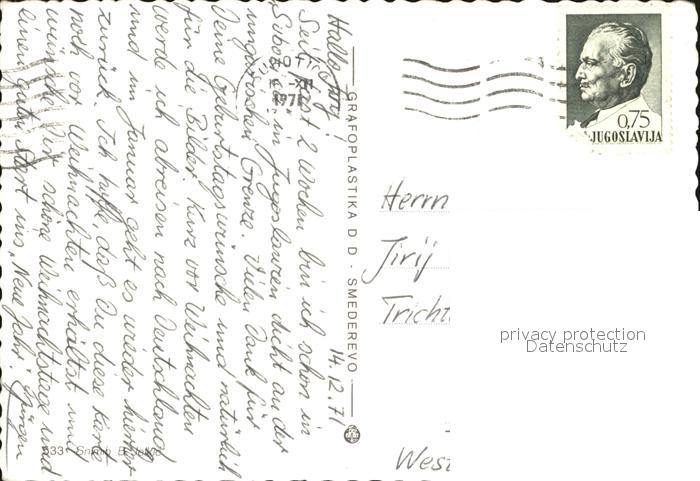 14.12.71
Hallo Jirij!
Seit fast 2 Wochen bin ich schon in
in Jugoslawien dicht an der
ungarischen Grenze. Vielen Dank für
Deine Geburtstagswünsche und natürlich
für die Bilder. Kurz vor Weihnachten
werde ich abreisen nach Deutschland
und im Januar geht es wieder hierher
zurück. Ich hoffe, daß Du diese Karte
noch vor Weihnachten erhältst und
wünsche Dir schöne Weihnachtstage und
einen guten Start ins "Neue Jahr". Jürgen
GRAFOPLASTIKA D D - SMEDEREVO
0,75
JUGOSLAVIJA
Herrn
Jirij
privacy protection
Datenschutz